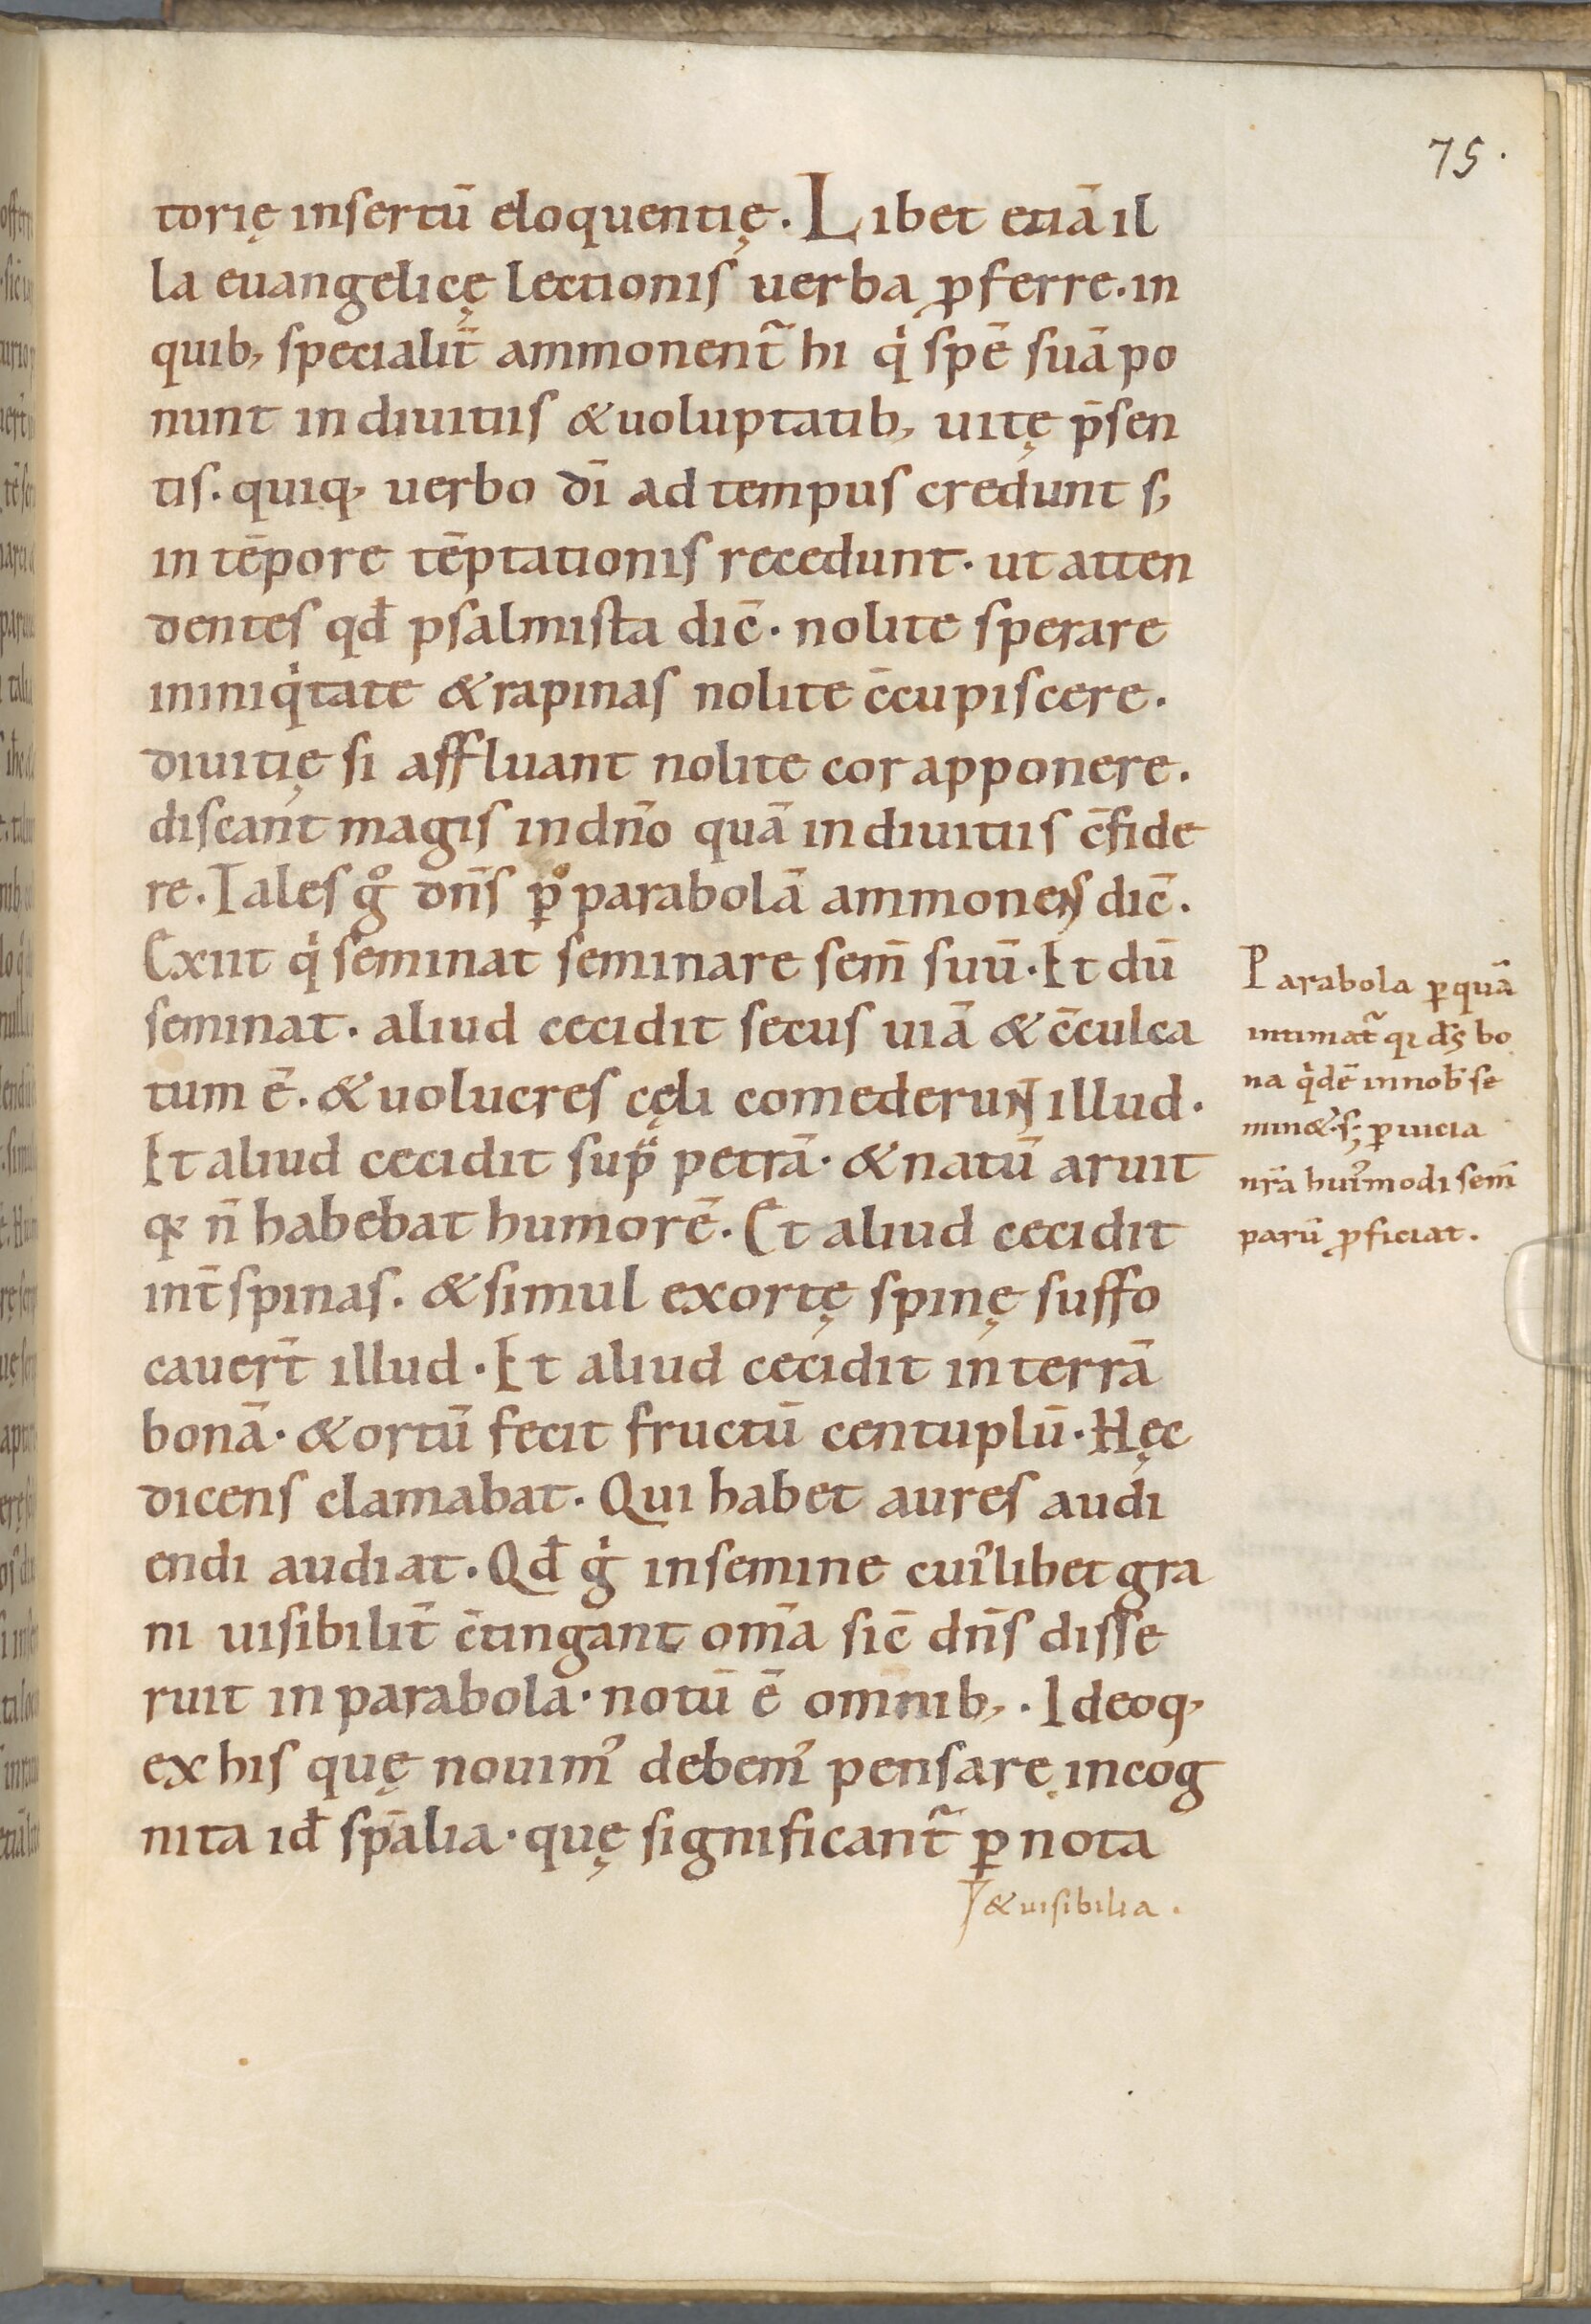 75.
torię insertū eloquentię. Libet etiā il
la euangelicę lectionis uerba ꝓferre. in
quib; specialit̄ ammonent᷑ hi qͥ spē suā po
nunt in diuitiis & uoluptatib; uitę p̄sen
tis. quiq; uerbo dī ad tempus credunt s;
in tēpore tēptationis recedunt. ut atten
dentes qđ psalmista dic̄. nolite sperare
in iniqͥtate & rapinas nolite c̄cupiscere.
diuitię si affluant nolite cor apponere.
discant magis in dn̄o quā in diuitiis c̄fide
re. Tales gͦ dn̄s ꝑ parabolā ammonens dic̄.
Exiit qͥ seminat seminare sem̄ suū. Et dū
seminat. aliud cecidit secus uiā & c̄culca
tum ē. & uolucres cęli comederunt illud.
Et aliud cecidit sup̄ petrā. & natū aruit
qꝛ n̄ habebat humorē. Et aliud cecidit
int̄ spinas. & simul exortę spinę suffo
cauer̄t illud. Et aliud cecidit in terrā
bonā. & ortū fecit fructū centuplū. Hęc
dicens clamabat. Qui habet aures audi
endi audiat. Qđ gͥ in semine cuiꝰlibet gra
ni uisibilit̄ c̄tingant om̄a sic̄ dn̄s disse
ruit in parabola. notū ē omnib;. Ideoq;
ex his quę nouimꝰ debemꝰ pensare incog
nita id̄ sp̄alia. quę significant᷑ ꝑ nota
& uisibilia.
Parabola ꝑ quā
intimat᷑ qꝛ ds̄ bo
na qͥdē in nob̄ se
min&. s; ꝑ uicia
nr̄a huiꝰmodi sem̄
parū ꝓficiat.